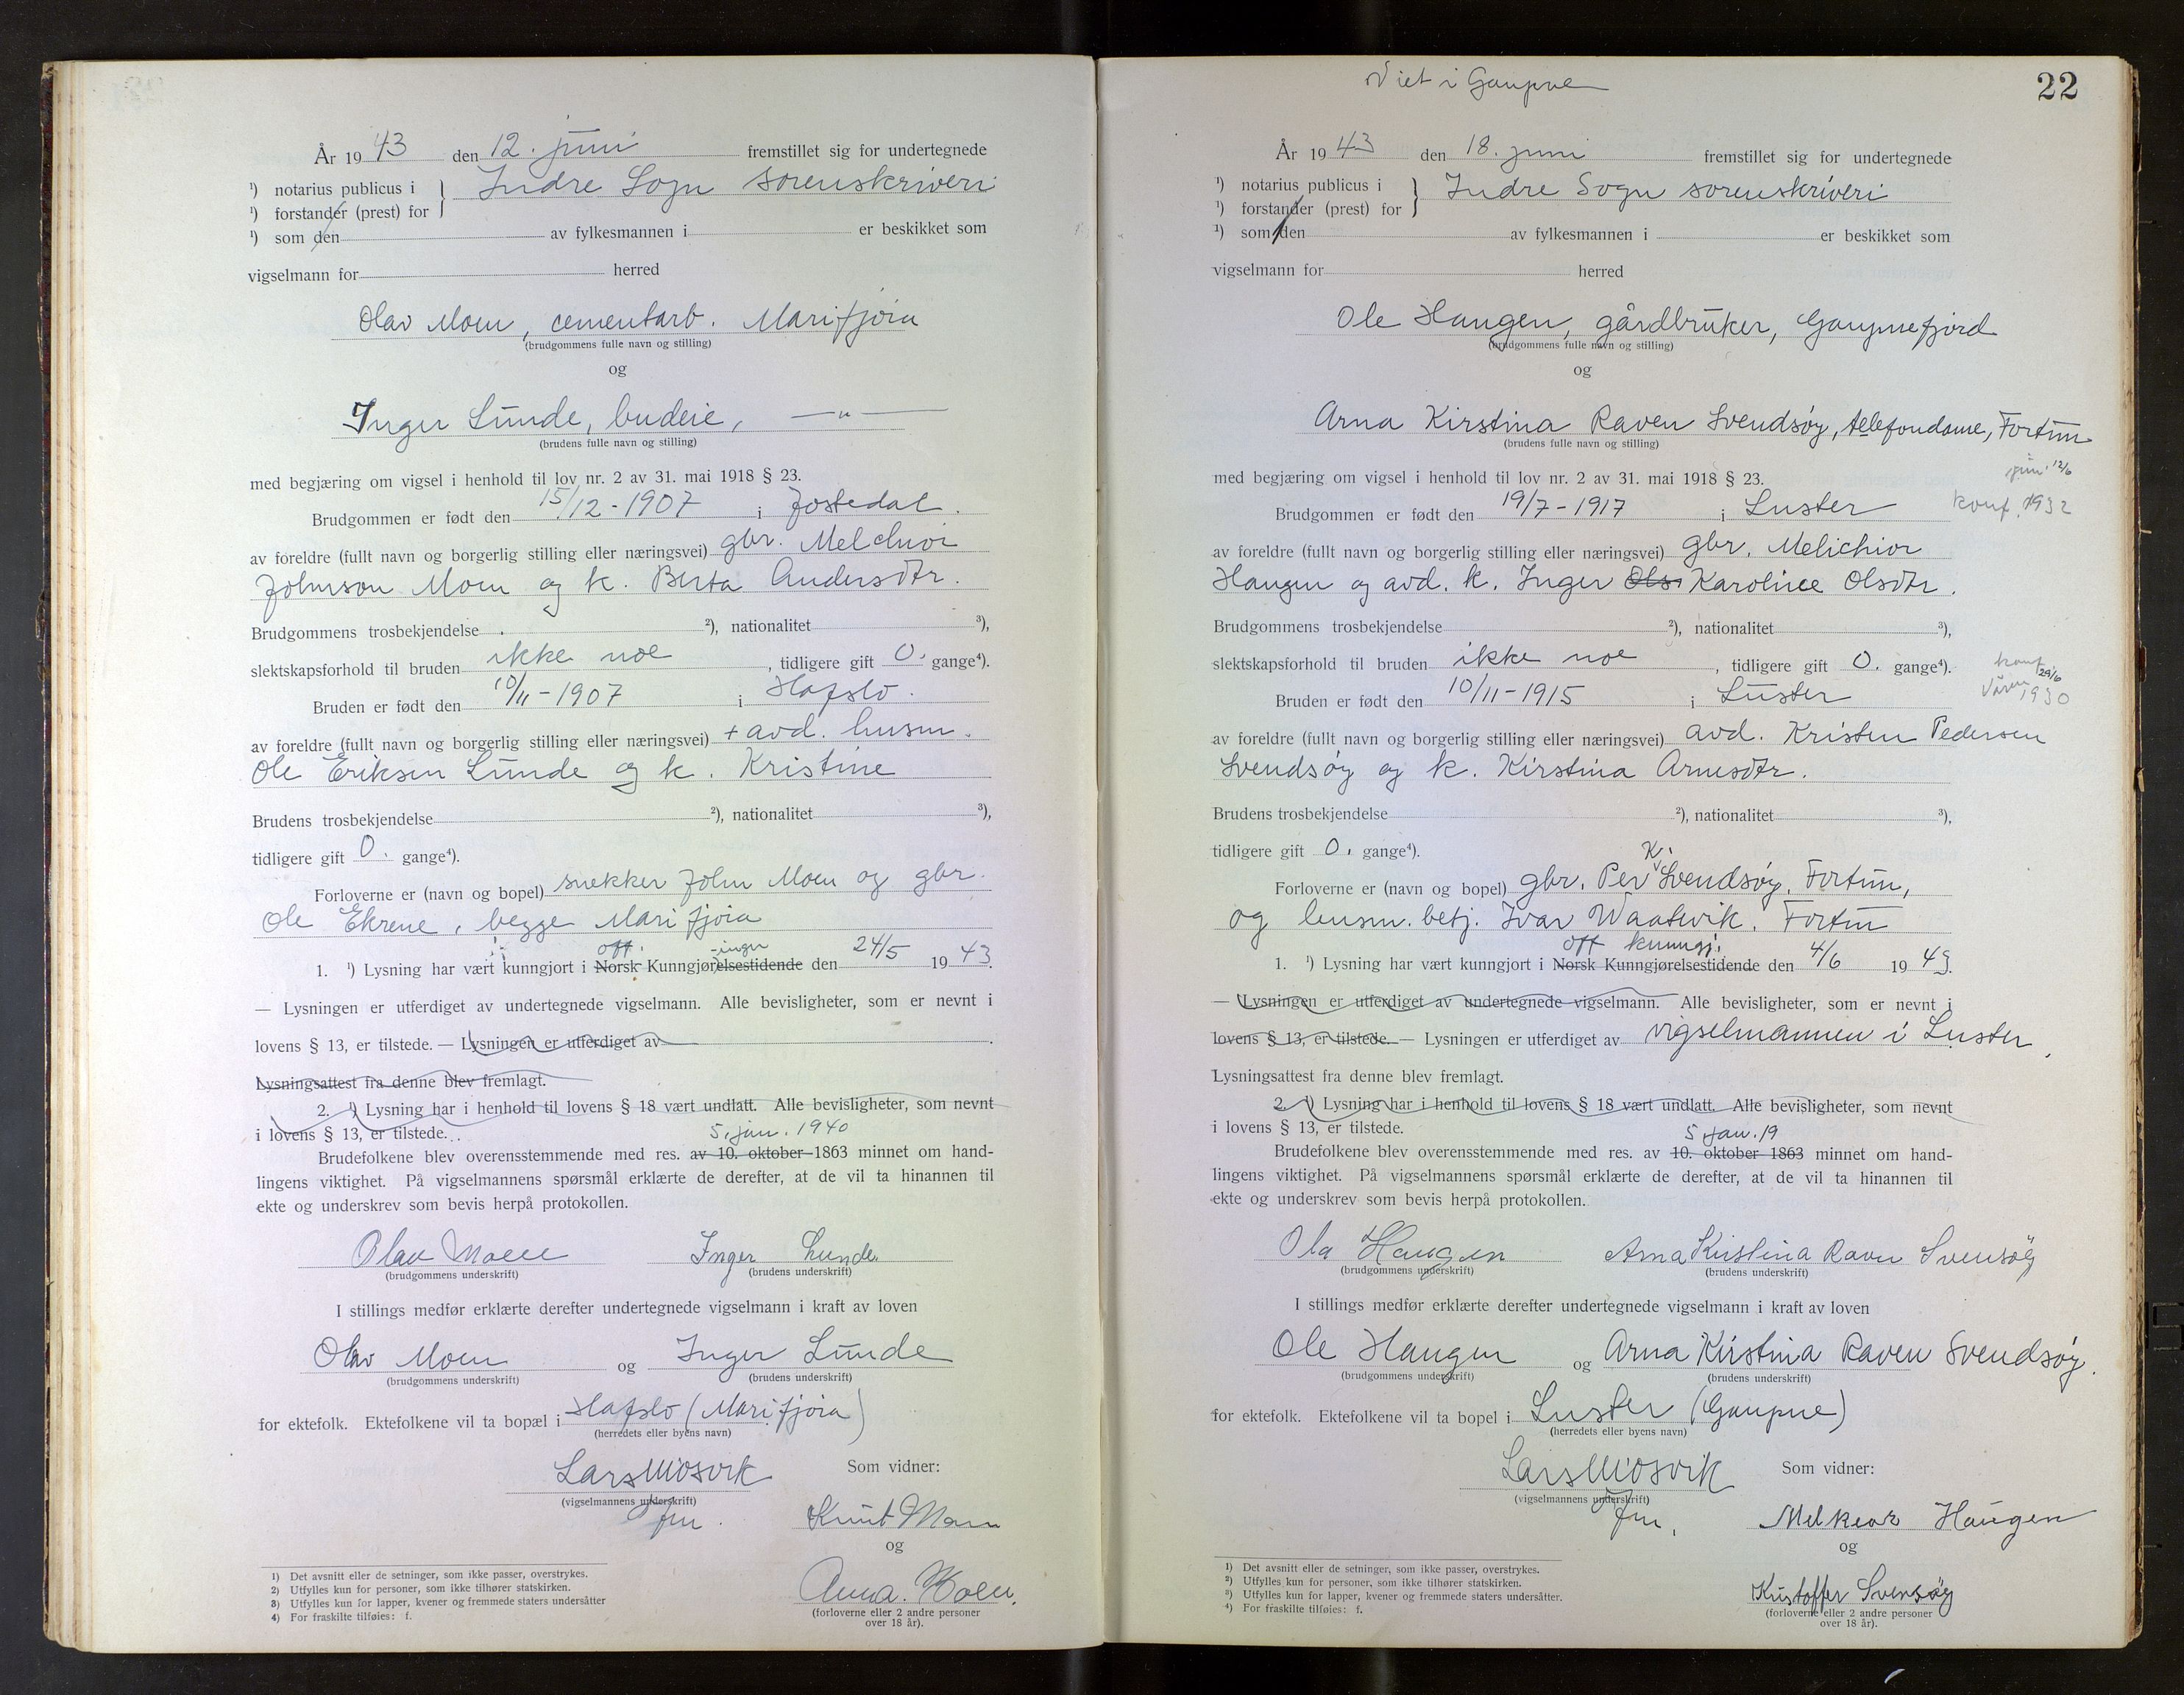 År 1943 den 12. juni fremstillet sig for undertegnede
¹) notarius publicus i } Indre Sogn sorenskriveri
¹) forstander (prest) for
¹) som den av fylkesmannen i er beskikket som
vigselmann for herred
Olav Moen, cementarb. Marifjøra
(brudgommens fulle navn og stilling)
og
Inger Lunde, budeie, —"—
(brudens fulle navn og stilling)
med begjæring om vigsel i henhold til lov nr. 2 av 31. mai 1918 § 23.
Brudgommen er født den 15/12-1907 i Jostedal.
av foreldre (fullt navn og borgerlig stilling eller næringsvei) gbr. Melchior
Johnson Moen og k. Berta Andersdtr.
Brudgommens trosbekjendelse ²), nationalitet ³),
slektskapsforhold til bruden ikke noe, tidligere gift 0. gange⁴).
Bruden er født den 10/11-1907 i Hafslo.
av foreldre (fullt navn og borgerlig stilling eller næringsvei) + avd. husm.
Ole Eriksen Lunde og k. Kristine
Brudens trosbekjendelse ²), nationalitet ³),
tidligere gift 0. gange⁴).
Forloverne er (navn og bopel) snekker John Moen og gbr.
Ole Ekrene, begge Marifjøra
off. -inger
1. ¹) Lysning har vært kunngjort i Norsk Kunngjørelsestidende den 24/5 1943.
— Lysningen er utferdiget av undertegnede vigselmann. Alle bevisligheter, som er nevnt i
lovens § 13, er tilstede. — Lysningen er utferdiget av .
Lysningsattest fra denne blev fremlagt.
2. ¹) Lysning har i henhold til lovens § 18 vært undlatt. Alle bevisligheter, som nevnt
i lovens § 13, er tilstede.
5. jan. 1940
Brudefolkene blev overensstemmende med res. av 10. oktober 1863 minnet om hand-
lingens viktighet. På vigselmannens spørsmål erklærte de derefter, at de vil ta hinannen til
ekte og underskrev som bevis herpå protokollen.
Olav Moen Inger Lunde
(brudgommens underskrift) (brudens underskrift)
I stillings medfør erklærte derefter undertegnede vigselmann i kraft av loven
Olav Moen og Inger Lunde
(brudgommens underskrift) (brudens underskrift)
for ektefolk. Ektefolkene vil ta bopæl i Hafslo (Marifjøra)
(herredets eller byens navn)
Lars Mosvik Som vidner:
(vigselmannens underskrift)
fm. Knut Moen
og
Anna Moen.
(forloverne eller 2 andre personer
over 18 år).
1) Det avsnitt eller de setninger, som ikke passer, overstrykes.
2) Utfylles kun for personer, som ikke tilhører statskirken.
3) Utfylles kun for lapper, kvener og fremmede staters undersåtter
4) For fraskilte tilføies: f.
Viet i Gaupne
22
År 1943 den 18. juni fremstillet sig for undertegnede
¹) notarius publicus i } Indre Sogn sorenskriveri
¹) forstander (prest) for
¹) som den av fylkesmannen i er beskikket som
vigselmann for herred
Ole Haugen, gårdbruker, Gaupnefjord
(brudgommens fulle navn og stilling)
og
Arna Kirstina Raven Svendsøy, telefondame, Fortun
(brudens fulle navn og stilling)
med begjæring om vigsel i henhold til lov nr. 2 av 31. mai 1918 § 23.
juni 12/6
Brudgommen er født den 19/7-1917 i Luster konf. 1932
av foreldre (fullt navn og borgerlig stilling eller næringsvei) gbr. Melichior
Haugen og avd. k. Inger Ols Karoline Olsdtr.
Brudgommens trosbekjendelse ²), nationalitet ³),
slektskapsforhold til bruden ikke noe, tidligere gift 0. gange⁴).
konf 29/6
Våren 1930
Bruden er født den 10/11-1915 i Luster
av foreldre (fullt navn og borgerlig stilling eller næringsvei) avd. Kristen Pedersen
Svendsøy og k. Kirstina Arnesdtr.
Brudens trosbekjendelse ²), nationalitet ³),
tidligere gift 0. gange⁴).
K.
Forloverne er (navn og bopel) gbr. Per Svendsøy, Fortun,
og lensm. betj. Ivar Waatvik. Fortun
off kunngj.
1. ¹) Lysning har vært kunngjort i Norsk Kunngjørelsestidende den 4/6 1943.
— Lysningen er utferdiget av undertegnede vigselmann. Alle bevisligheter, som er nevnt i
lovens § 13, er tilstede. — Lysningen er utferdiget av vigselmannen i Luster.
Lysningsattest fra denne blev fremlagt.
2. ¹) Lysning har i henhold til lovens § 18 vært undlatt. Alle bevisligheter, som nevnt
i lovens § 13, er tilstede.
5 jan. 19
Brudefolkene blev overensstemmende med res. av 10. oktober 1863 minnet om hand-
lingens viktighet. På vigselmannens spørsmål erklærte de derefter, at de vil ta hinannen til
ekte og underskrev som bevis herpå protokollen.
Ola Haugen Arna Kristina Raven Svensøy
(brudgommens underskrift) (brudens underskrift)
I stillings medfør erklærte derefter undertegnede vigselmann i kraft av loven
Ole Haugen og Arna Kirstina Raven Svendsøy.
(brudgommens underskrift) (brudens underskrift)
for ektefolk. Ektefolkene vil ta bopel i Luster (Gaupne)
(herredets eller byens navn)
Lars Mosvik Som vidner:
(vigselmannens underskrift)
fm. Melkear Haugen
og
Kristoffer Svensøy
(forloverne eller 2 andre personer
over 18 år).
1) Det avsnitt eller de setninger, som ikke passer, overstrykes.
2) Utfylles kun for personer, som ikke tilhører statskirken.
3) Utfylles kun for lapper, kvener og fremmede staters undersåtter.
4) For fraskilte tilføies: f.